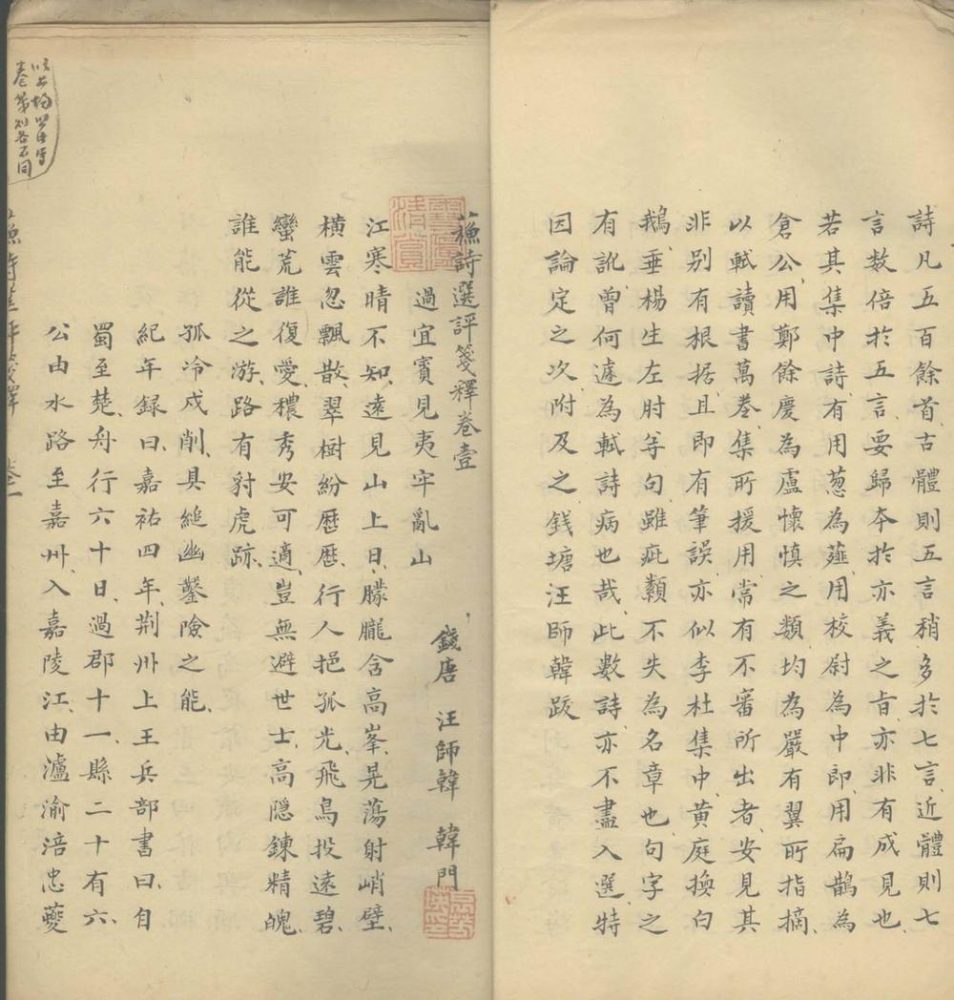 詩凡五百餘首古體則五言稍多於七言近體則七
言数倍於五言要歸夲於亦義之㫖亦非有成見也
若其集中詩有用葱為薤用校尉為中郎用扁鵲為
倉公用鄭餘慶為盧懷慎之類均為嚴有翼所指摘
以軾讀書萬卷集所援用常有不審所出者安見其
非别有根据且即有筆誤亦似李杜集中黄庭換白
鵝垂楊生左肘等句雖疵纇不失為名章也句字之
有訛曾何遽為軾詩病也哉此數詩亦不盡入選特
因論定之次附及之錢塘汪師韓跋
蘓詩選評箋釋卷壹
錢唐 汪師韓 韓門
過宜賓見夷牢亂山
江寒晴不知遠見山上日朦朧含高峯晃蕩射峭壁
横雲忽飄散翠樹紛歷歷行人挹孤光飛鳥投遠碧
蠻荒誰復愛穠秀安可適豈無避世士高隐鍊精魄
誰能從之游路有豺虎跡
孤冷戍削具縋幽鑿險之能
紀年録曰嘉祐四年荆州上王兵部書曰自
蜀至楚舟行六十日過郡十一縣二十有六
公由水路至嘉州入嘉陵江由瀘渝涪忠夔
卷第列各不同